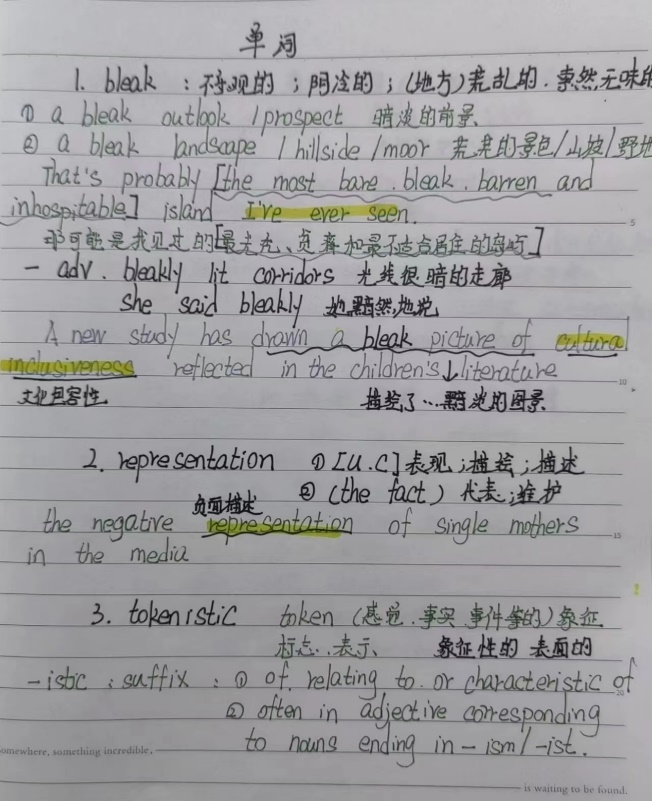 单词
1. bleak : 不乐观的 ; 阴冷的 ; (地方) 荒乱的. 索然无味的
① a bleak outlook / prospect 暗淡的前景
② a bleak landscape / hillside / moor 荒芜的景色/山坡/野地
That's probably [the most bare. bleak. barren and
inhospitable] island I've ever seen.
那可能是我见过的[最光秃、贫瘠和最不适合居住的岛屿]
- adv. bleakly lit corridors 光线很暗的走廊
she said bleakly 她黯然地说
A new study has drawn a bleak picture of cultural
inclusiveness reflected in the children's literature
文化包容性 描绘了...黯淡的图景
2. representation ① [U.C] 表现 ; 描绘 ; 描述
② (the fact) 代表 ; 维护
负面描述
the negative representation of single mothers
in the media
3. tokenistic token (感觉. 事实 事件等的) 象征
标志. 表示 象征性的 表面的
-istic : suffix : ① of. relating to. or characteristic of
② often in adjective corresponding
to nouns ending in -ism / -ist.
omewhere, something incredible,
is waiting to be found.